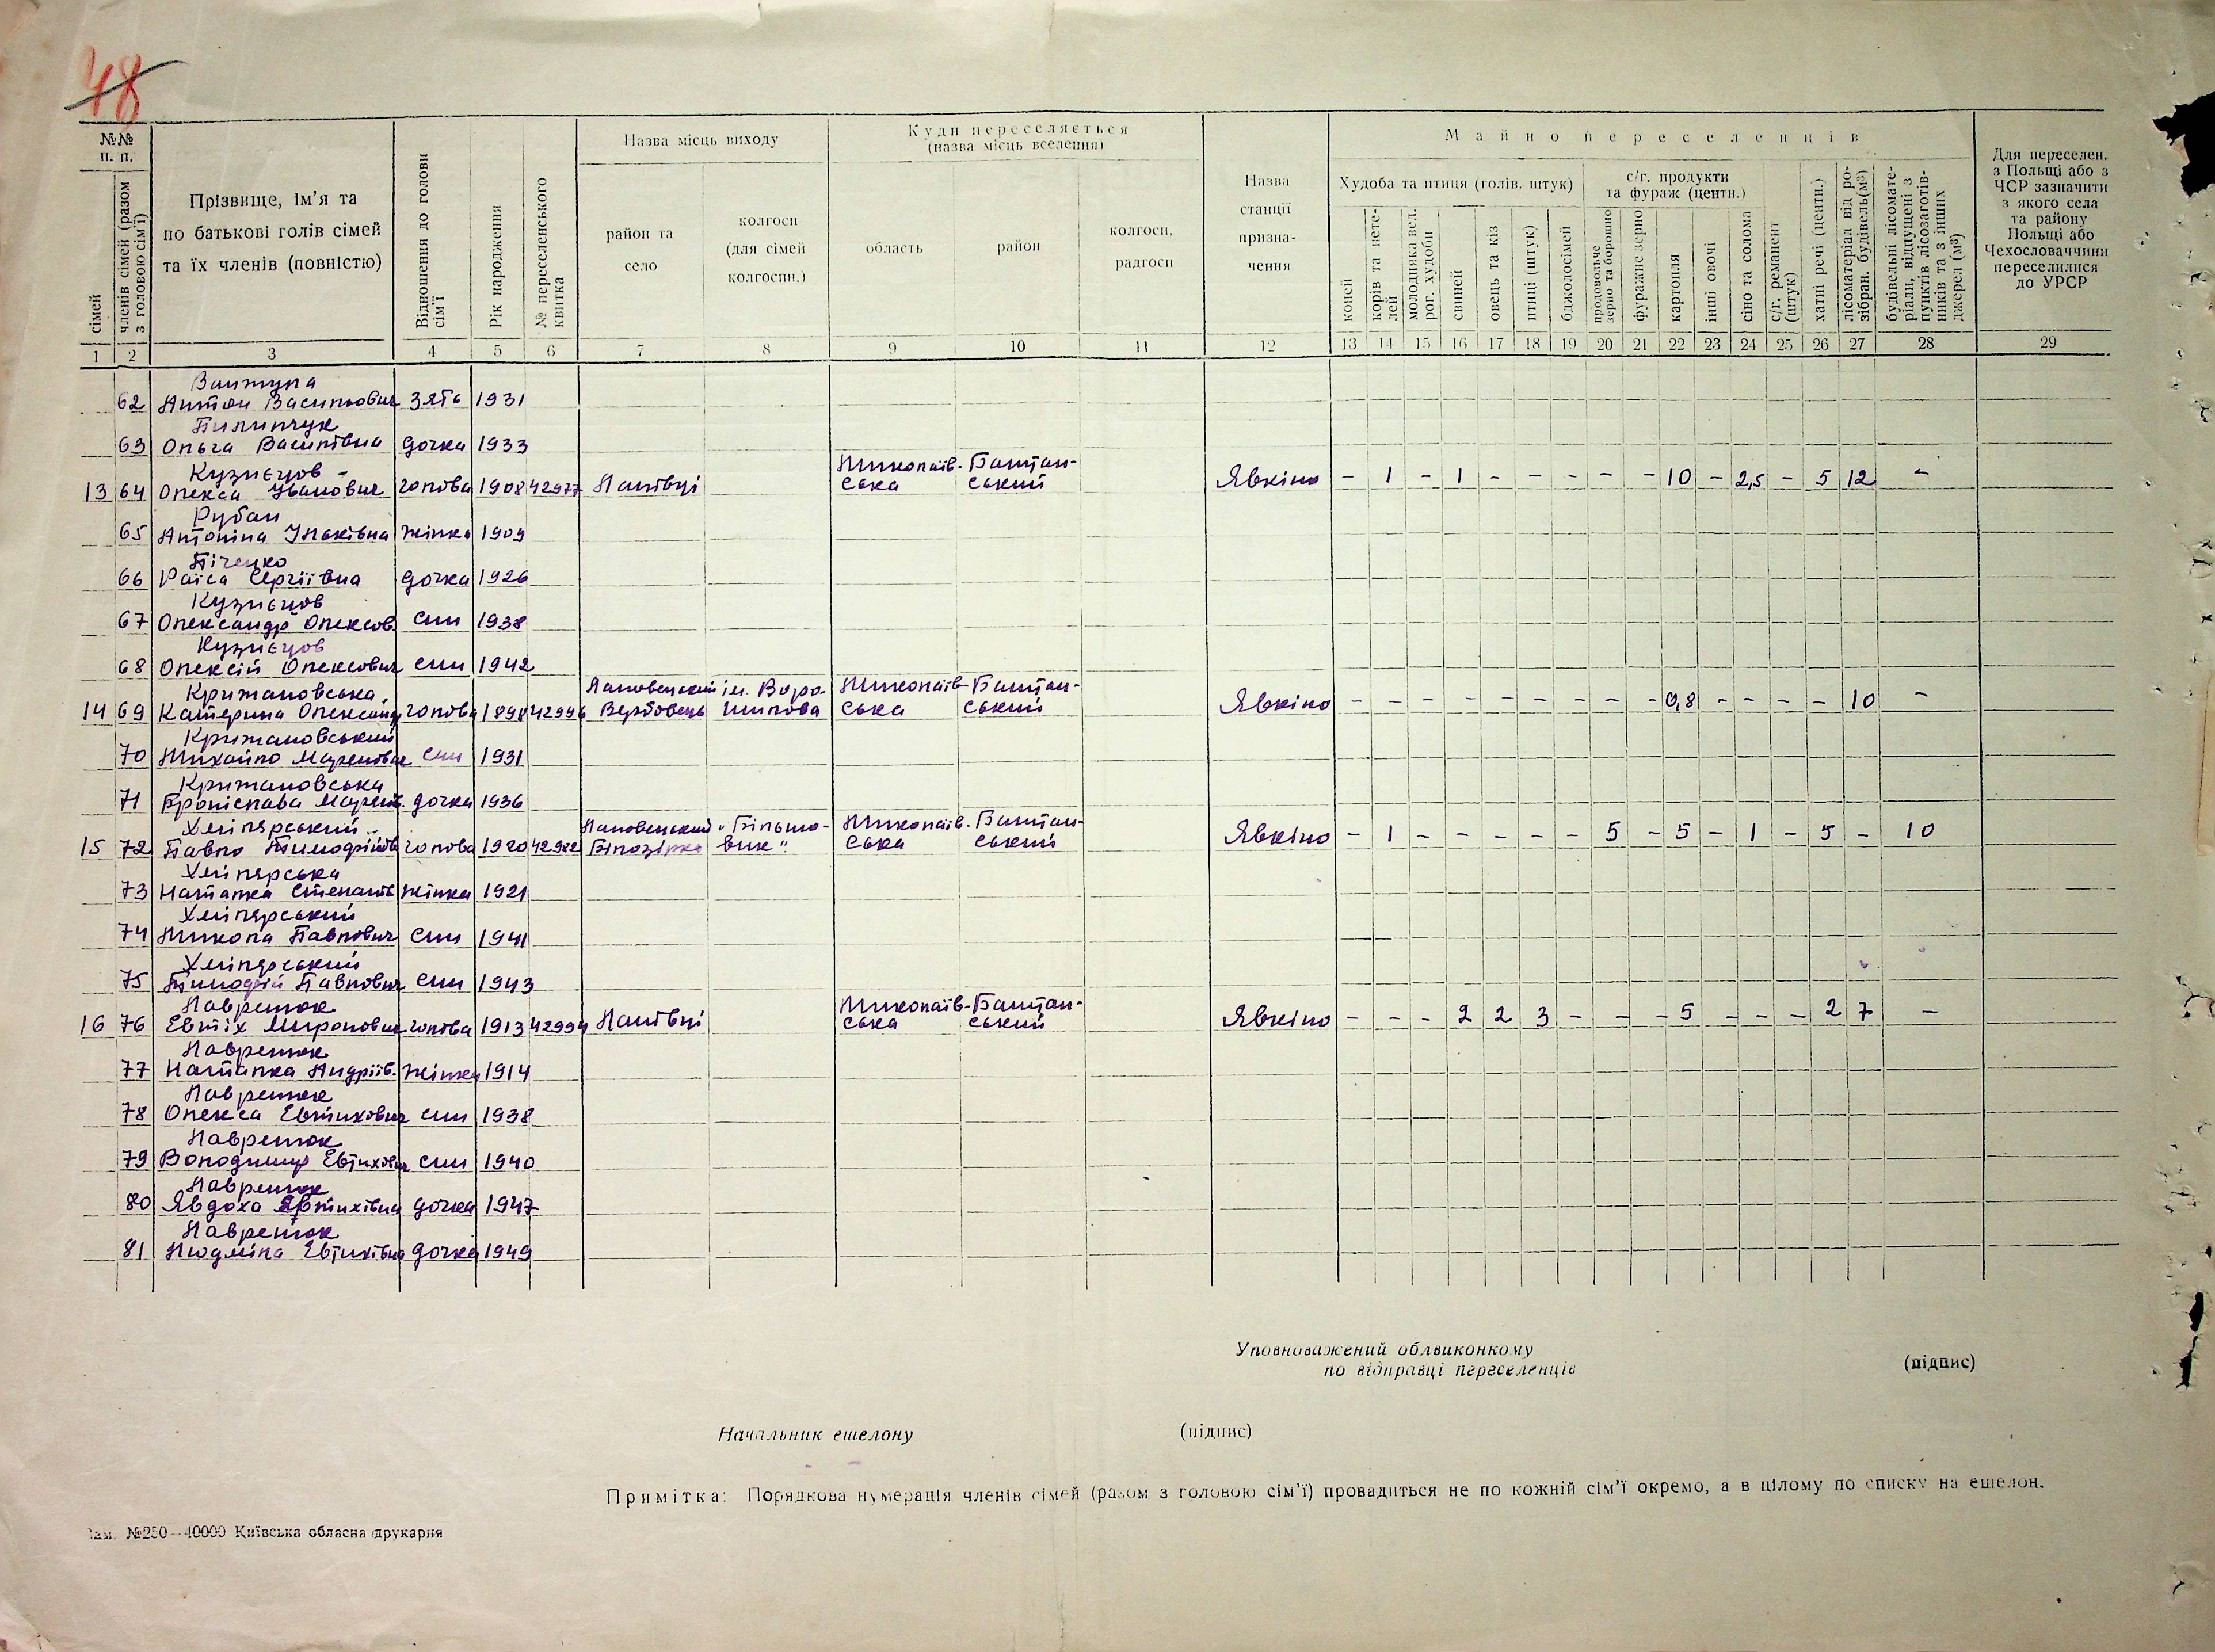 48
№№ п. п.
сімей
членів сімей (разом з головою сім'ї)
Прізвище, ім'я та
по батькові голів сімей
та їх членів (повністю)
Відношення до голови сім'ї
Рік народження
№ переселенського квитка
Назва місць виходу
район та село
колгосп (для сімей колгоспн.)
Куди переселяється
(назва місць вселення)
область
район
колгосп, радгосп
Назва станції призна-чення
Майно переселенців
Худоба та птиця (голів, штук)
коней
корів та нете-лей
молодняка вел. рог. худоби
свиней
овець та кіз
птиці (штук)
бджолосімей
с/г. продукти та фураж (центн.)
продовольче зерно та борошно
фуражне зерно
картопля
інші овочі
сіно та солома
с/г. реманент (штук)
хатні речі (центн.)
лісоматеріал від ро-зібран. будівель(м³)
будівельні лісомате-ріали, відпущені з пунктів лісозаготів-ників та з інших джерел (м³)
Для переселен. з Польщі або з ЧСР зазначити з якого села та району Польщі або Чехословаччини переселилися до УРСР
1 2 3 4 5 6 7 8 9 10 11 12 13 14 15 16 17 18 19 20 21 22 23 24 25 26 27 28 29
62 Антон Васильович зять 1931
Пилипчук
63 Ольга Василівна дочка 1933
Кузнєцов Миколаїв- Баштан-
13 64 Олекса Іванович голова 1908 42977 Ланівці ська ський Явкіно - 1 - 1 - - - - - 10 - 2,5 - 5 12 -
Рубан
65 Антоніна Ільківна жінка 1909
Піченко
66 Раїса Сергіївна дочка 1926
Кузнєцов
67 Олександр Олексов. син 1938
Кузнєцов
68 Олексій Олексович син 1942
Крижановська Лановецький ім. Воро- Миколаїв- Баштан-
14 69 Катерина Олександ. голова 1898 42996 Вербовець шилова ська ський Явкіно - - - - - - - - - 0,8 - - - - 10 -
Крижановський
70 Михайло Марелович син 1931
Крижановська
71 Броніслава Марелів. дочка 1936
Хмілярський Лановецький „Більшо- Миколаїв- Баштан-
15 72 Павло Тимофійов. голова 1920 42982 Білозірка вик" ська ський Явкіно - 1 - - - - - 5 - 5 - 1 - 5 - 10
Хмілярська
73 Наталка Степанів. жінка 1921
Хмілярський
74 Микола Павлович син 1941
Хмілярський
75 Тимофій Павлович син 1943
Лавренюк Миколаїв- Баштан-
16 76 Евтіх Миронович голова 1913 42994 Ланівці ська ський Явкіно - - - 2 2 3 - - - 5 - - - 2 7 -
Лавренюк
77 Наталка Андріїв. жінка 1914
Лавренюк
78 Олекса Евтихович син 1938
Лавренюк
79 Володимир Евтихович син 1940
Лавренюк
80 Явдоха Явтихівна дочка 1947
Лавренюк
81 Людміла Евтихівна дочка 1949
Уповноважений облвиконкому
по відправці переселенців (підпис)
Начальник ешелону (підпис)
Примітка: Порядкова нумерація членів сімей (разом з головою сім'ї) провадиться не по кожній сім'ї окремо, а в цілому по списку на ешелон.
Зам. №250—40000 Київська обласна друкарня